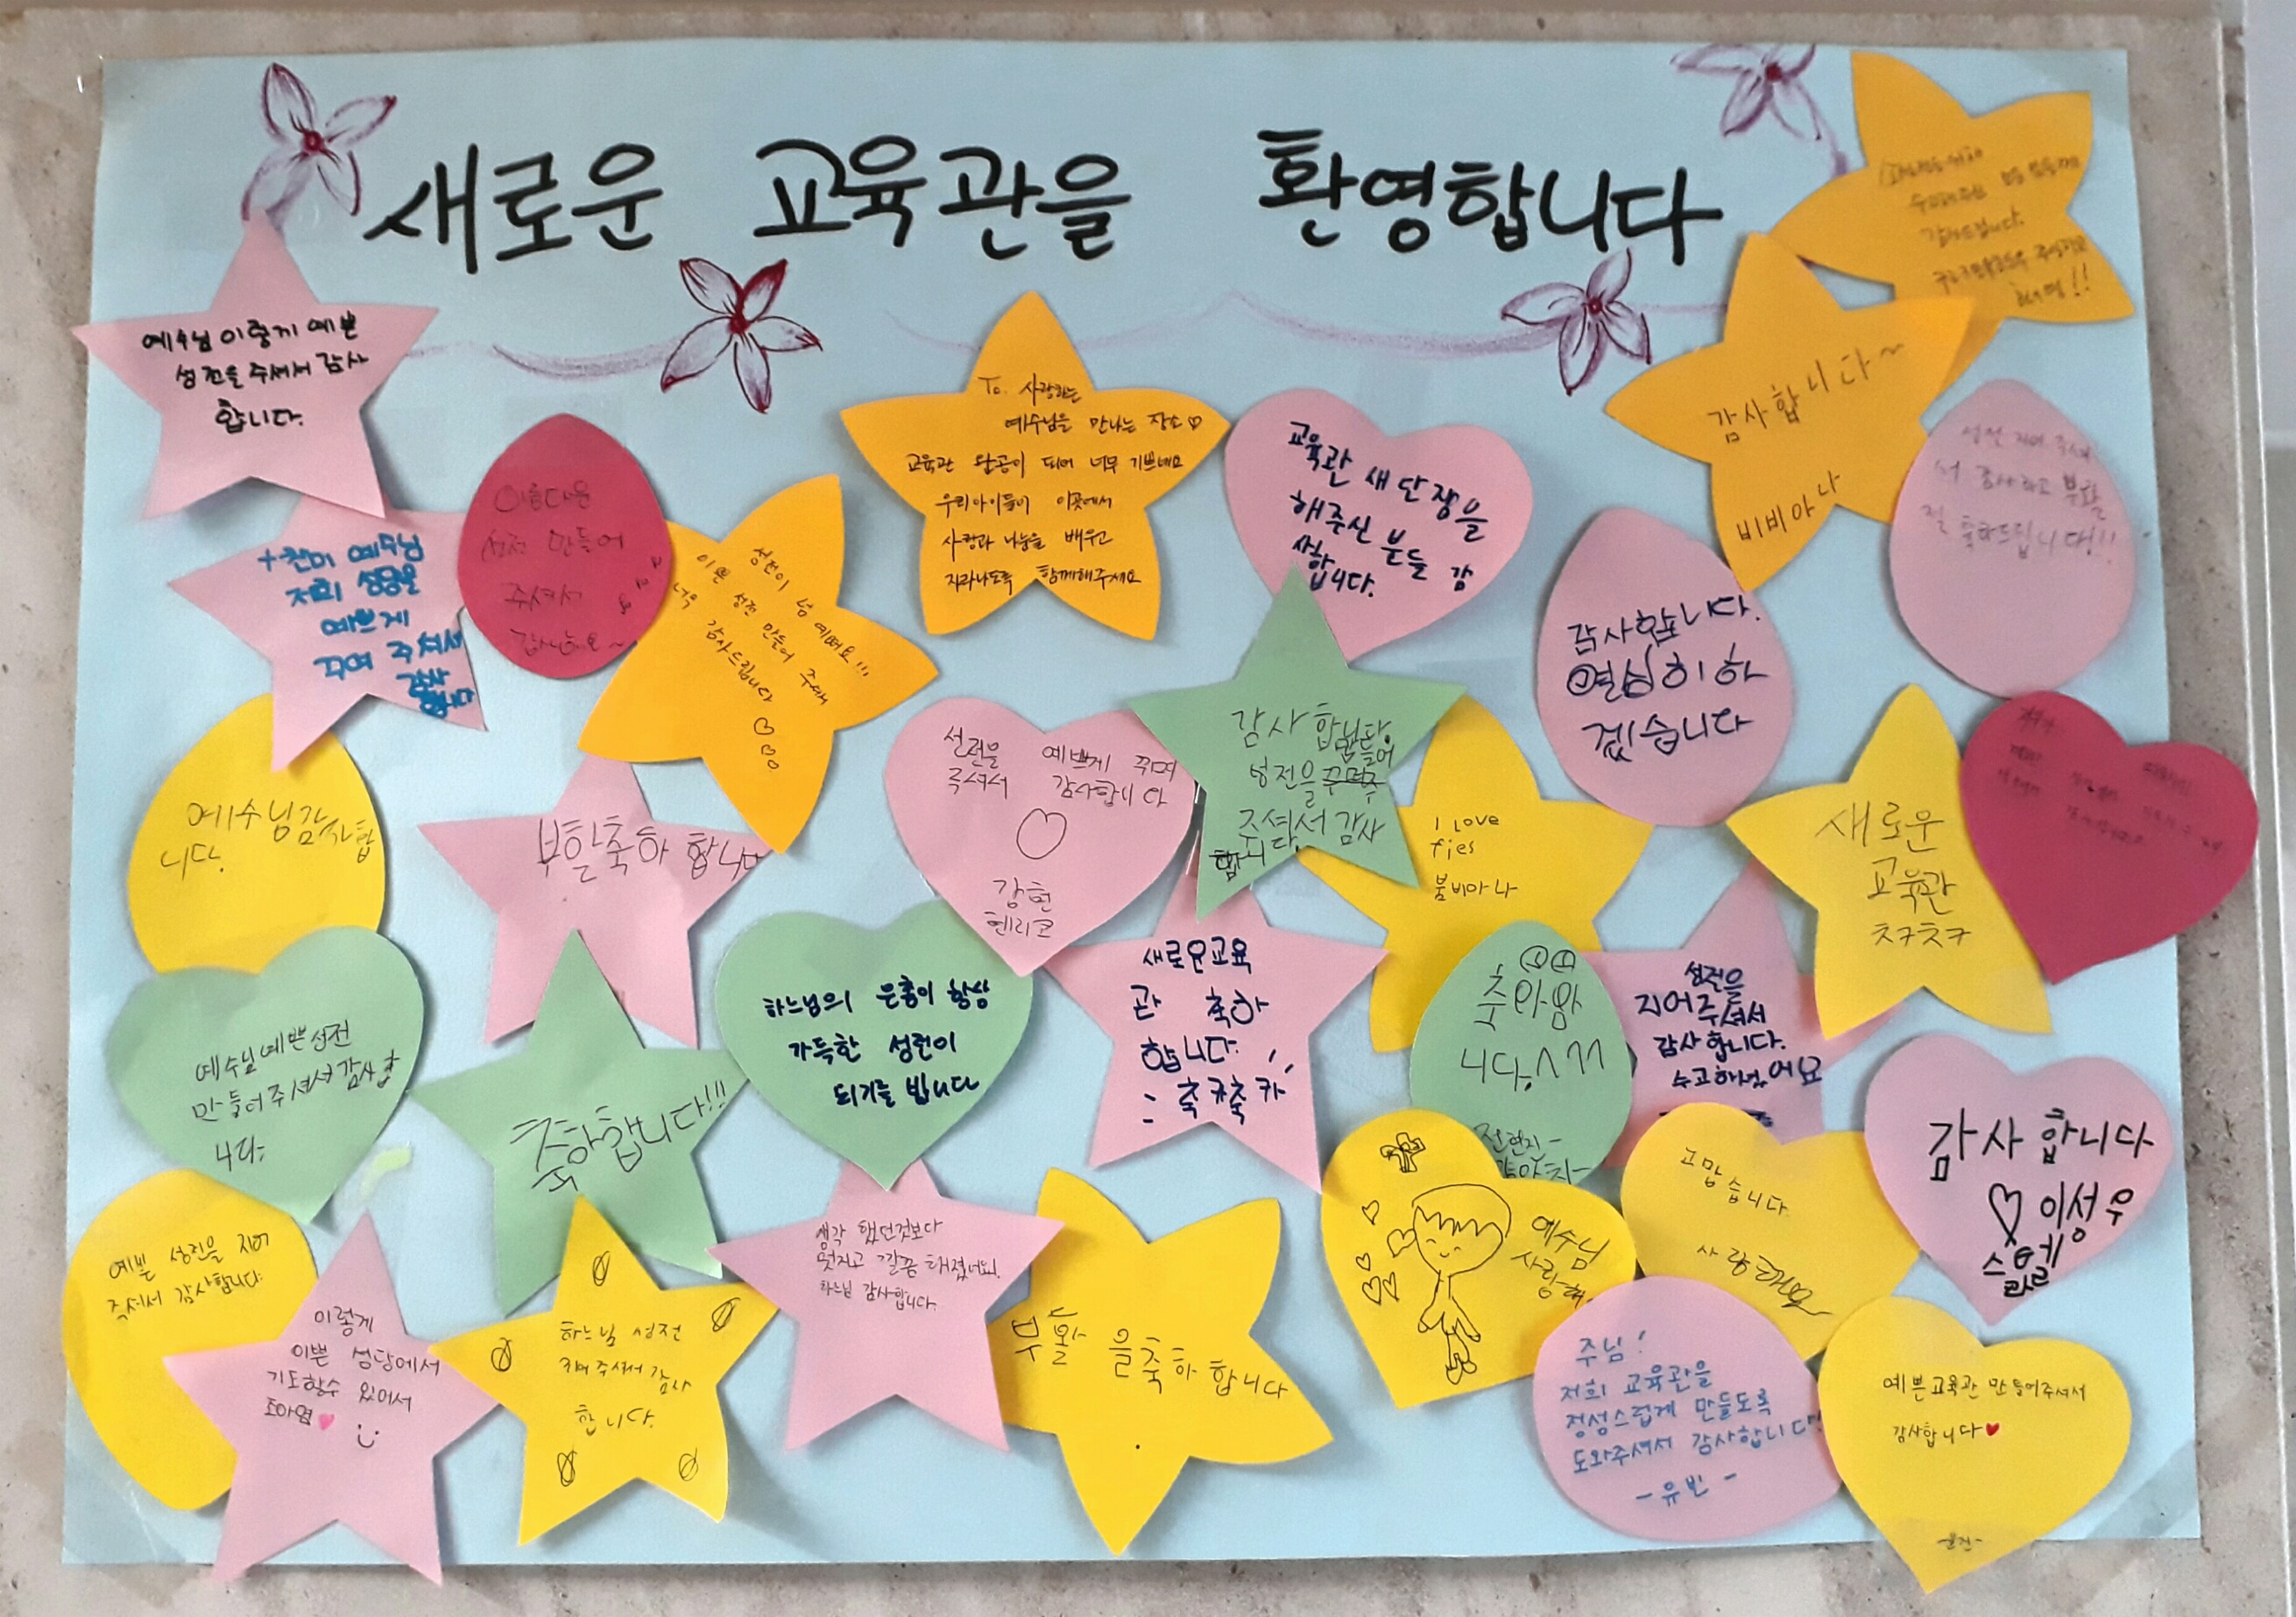 새로운 교육관을 환영합니다
예수님 이렇게 예쁜
성전을 주셔서 감사
합니다.
+찬미 예수님
저희 성당을
예쁘게
꾸며 주셔서
감사
합니다
아름다운
성전 만들어
주셔서
성전이 넘 예뻐요!!!
이쁜 성전 만들어 주셔서
너무 감사드립니다
To. 사랑하는
예수님을 만나는 장소♡
교육관 완공이 되어 너무 기쁘네요
우리아이들이 이곳에서
사랑과 나눔을 배우고
자라나도록 함께해주세요
교육관 새 단장을
해주신 분들 감
사합니다.
수고해주신
감사드립니다.
감사합니다~
비비아나
성전 지어 주셔
서 감사하고 부활
절 축하드립니다!!
감사합니다.
열심히 하
겠습니다
예수님 감사합
니다.
부활축하 합니다
성전을 예쁘게 꾸며
주셔서 감사합니다
강현
헨리코
감사 합니다
성전을 만들어
주셔서 감사
합니다.
I Love
fies
붐비아나
새로운
교육관
추카추카
예수님 예쁜성전
만들어주셔서 감사합
니다.
축하합니다!!!
하느님의 은총이 항상
가득한 성전이
되기를 빕니다
새로운교육
관 축하
합니다.
축카축카
니다.^^
전현진-
성전을
지어주셔서
감사합니다.
수고하셨어요
감사 합니다
♡ 이성우
예쁜 성전을 지어
주셔서 감사합니다.
이렇게
이쁜 성당에서
기도할수 있어서
조아염♥
하느님 성전
지어주셔서 감사
합니다.
생각 했던것보다
멋지고 깔끔해졌네요.
하느님 감사합니다.
부활을축하합니다
예수님
사랑해
고맙습니다
사랑해요
주님!
저희 교육관을
정성스럽게 만들도록
도와주셔서 감사합니다!
-유빈-
예쁜교육관 만들어주셔서
감사합니다♥